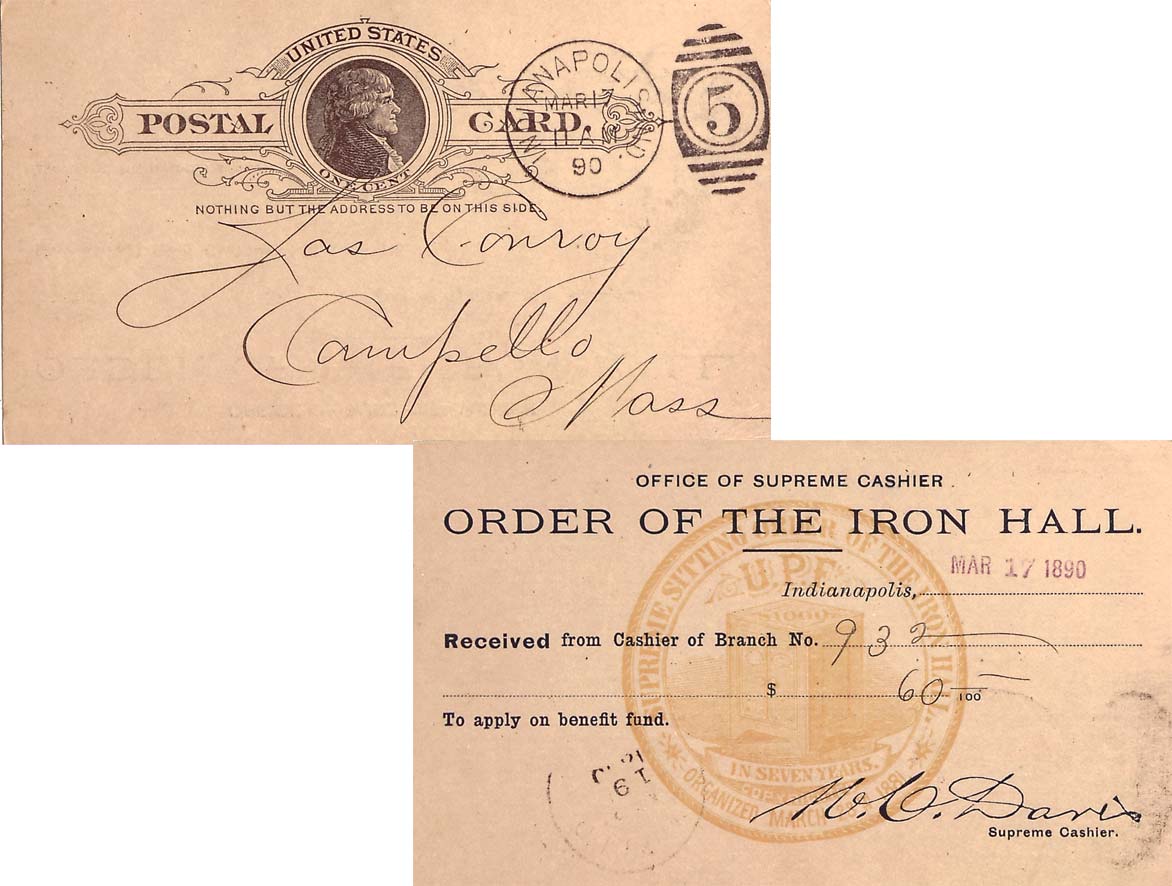 UNITED STATES
POSTAL CARD.
ONE CENT
NOTHING BUT THE ADDRESS TO BE ON THIS SIDE.
INDIANAPOLIS, IND.
MAR 17
11 AM
90
5
Jas Conroy
Campello
Mass
OFFICE OF SUPREME CASHIER
ORDER OF THE IRON HALL.
MAR 17 1890
Indianapolis,
Received from Cashier of Branch No. 932
$ 60 100
To apply on benefit fund.
W. C. Davis
Supreme Cashier.
SUPREME SITTING ORDER OF THE IRON HALL.
U.P.F.
$1000
IN SEVEN YEARS.
ORGANIZED MARCH 28, 1881